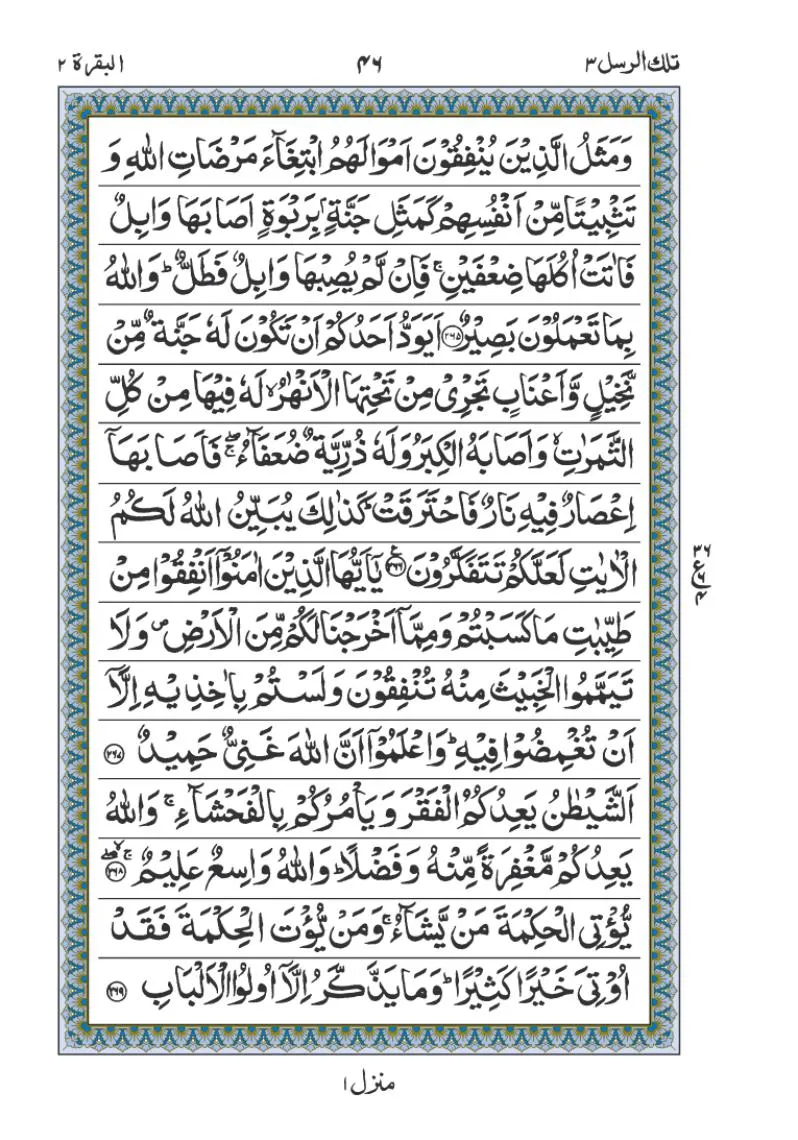 تلك الرسل ٣ ۴۶ البقرة ٢
وَمَثَلُ الَّذِيْنَ يُنْفِقُوْنَ اَمْوَالَهُمُ ابْتِغَآءَ مَرْضَاتِ اللّٰهِ وَ
تَثْبِيْتًا مِّنْ اَنْفُسِهِمْ كَمَثَلِ جَنَّةٍۭ بِرَبْوَةٍ اَصَابَهَا وَابِلٌ
فَاٰتَتْ اُكُلَهَا ضِعْفَيْنِ ۚ فَاِنْ لَّمْ يُصِبْهَا وَابِلٌ فَطَلٌّ ؕ وَاللّٰهُ
بِمَا تَعْمَلُوْنَ بَصِيْرٌ ۲۶۵ اَيَوَدُّ اَحَدُكُمْ اَنْ تَكُوْنَ لَهٗ جَنَّةٌ مِّنْ
نَّخِيْلٍ وَّاَعْنَابٍ تَجْرِىْ مِنْ تَحْتِهَا الْاَنْهٰرُ ۙ لَهٗ فِيْهَا مِنْ كُلِّ
الثَّمَرٰتِ ۙ وَاَصَابَهُ الْكِبَرُ وَلَهٗ ذُرِّيَّةٌ ضُعَفَآءُ ۖۚ فَاَصَابَهَاۤ
اِعْصَارٌ فِيْهِ نَارٌ فَاحْتَرَقَتْ ؕ كَذٰلِكَ يُبَيِّنُ اللّٰهُ لَكُمُ
الْاٰيٰتِ لَعَلَّكُمْ تَتَفَكَّرُوْنَ ۲۶۶ يٰۤاَيُّهَا الَّذِيْنَ اٰمَنُوْۤا اَنْفِقُوْا مِنْ
طَيِّبٰتِ مَا كَسَبْتُمْ وَمِمَّاۤ اَخْرَجْنَا لَكُمْ مِّنَ الْاَرْضِ ۪ وَلَا
تَيَمَّمُوا الْخَبِيْثَ مِنْهُ تُنْفِقُوْنَ وَلَسْتُمْ بِاٰخِذِيْهِ اِلَّاۤ
اَنْ تُغْمِضُوْا فِيْهِ ؕ وَاعْلَمُوْۤا اَنَّ اللّٰهَ غَنِىٌّ حَمِيْدٌ ۲۶۷
اَلشَّيْطٰنُ يَعِدُكُمُ الْفَقْرَ وَيَاْمُرُكُمْ بِالْفَحْشَآءِ ۚ وَاللّٰهُ
يَعِدُكُمْ مَّغْفِرَةً مِّنْهُ وَفَضْلًا ؕ وَاللّٰهُ وَاسِعٌ عَلِيْمٌ ۖۚ ۲۶۸
يُّؤْتِى الْحِكْمَةَ مَنْ يَّشَآءُ ۚ وَمَنْ يُّؤْتَ الْحِكْمَةَ فَقَدْ
اُوْتِىَ خَيْرًا كَثِيْرًا ؕ وَمَا يَذَّكَّرُ اِلَّاۤ اُولُوا الْاَلْبَابِ ۲۶۹
۳۶
ع
۶
۴
منزل ١